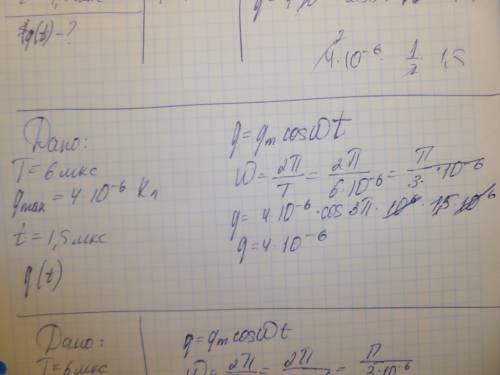 q(t) – ?
4·10⁻⁶ · 1/2 · 1,5
Дано:
T = 6 мкс
qmax = 4 10⁻⁶ Кл
t = 1,5 мкс
q(t)
q = qm cos ωt
ω = 2π/T = 2π/6·10⁻⁶ = π/3· · 10⁻⁶
q = 4·10⁻⁶ · cos 3π · 10⁶ · 1,5 10⁻⁶
q = 4·10⁻⁶
Дано:
T = 6 мкс
q = qm cos ωt
ω = 2π = 2π = π/3·10⁻⁶